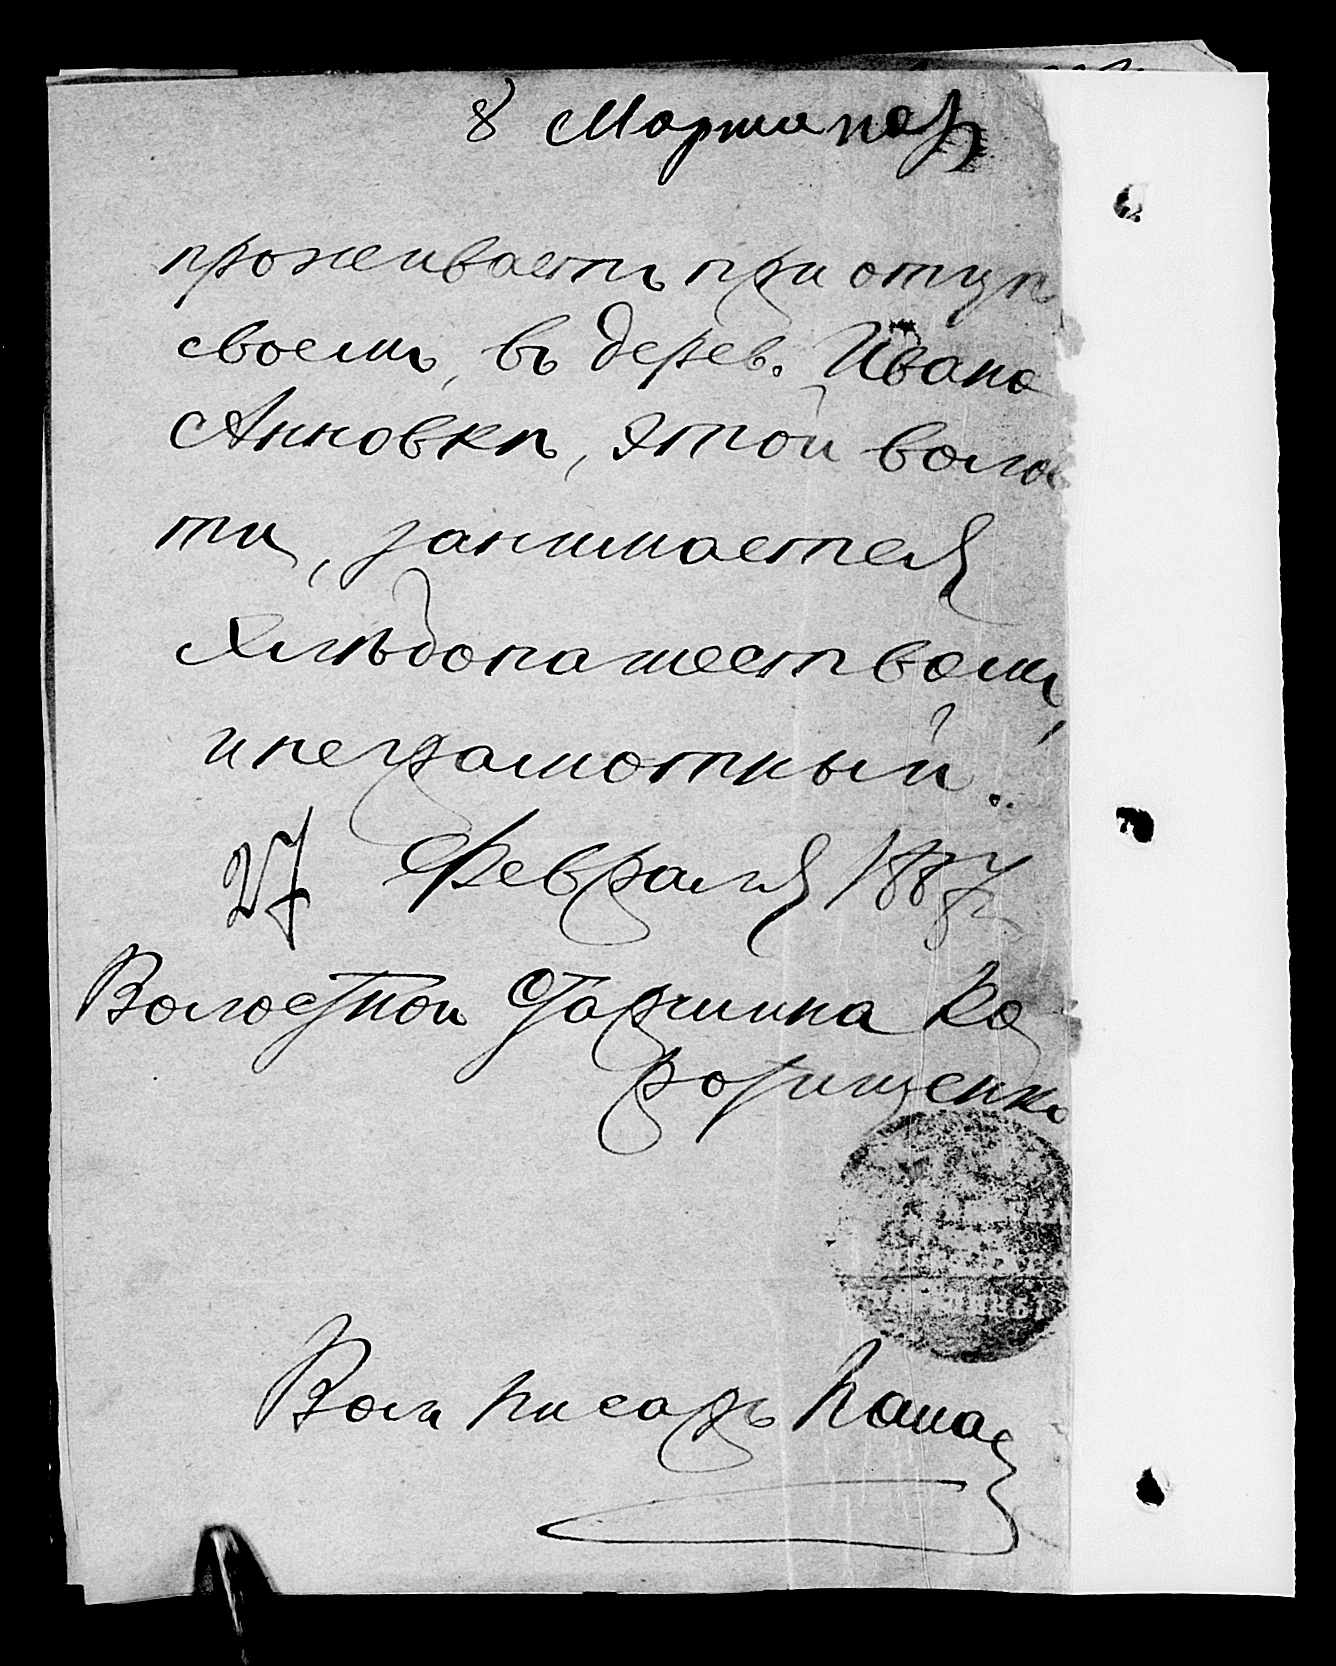 8 Марта
проживаетъ при отцѣ
своемъ, въ дерев. Ивано
Анновкѣ, этой волос
ти, занимается
хлѣбопашествомъ,
неграмотный.
27 Февраля 1887 г.
Волостной Старшина Ко
ротищенко
Вол. писарь